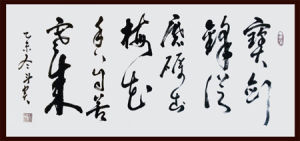 寶劍
鋒從
磨礪出
梅花
香自苦
寒來
乙未冬月